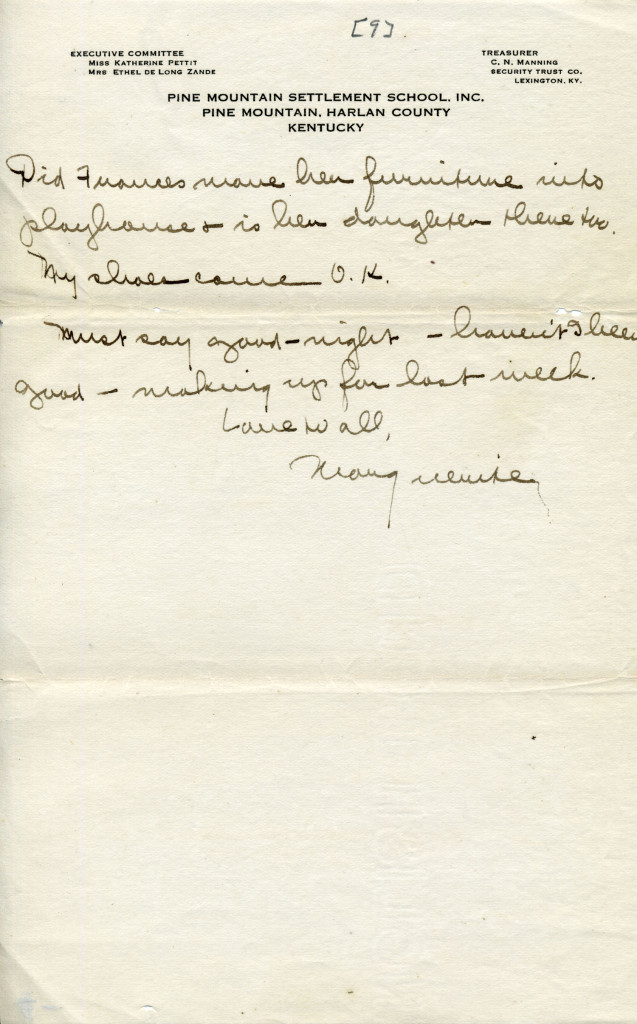 [9].
EXECUTIVE COMMITTEE
MISS KATHERINE PETTIT
MRS ETHEL DE LONG ZANDE
TREASURER
C. N. MANNING
SECURITY TRUST CO.
LEXINGTON, KY.
PINE MOUNTAIN SETTLEMENT SCHOOL, INC.
PINE MOUNTAIN, HARLAN COUNTY
KENTUCKY
Did Frances move her furniture into
playhouse & is her daughter there too.
My shoes came O.K.
Must say good-night - haven't I been
good - making up for last week.
Love to all,
Marguerite